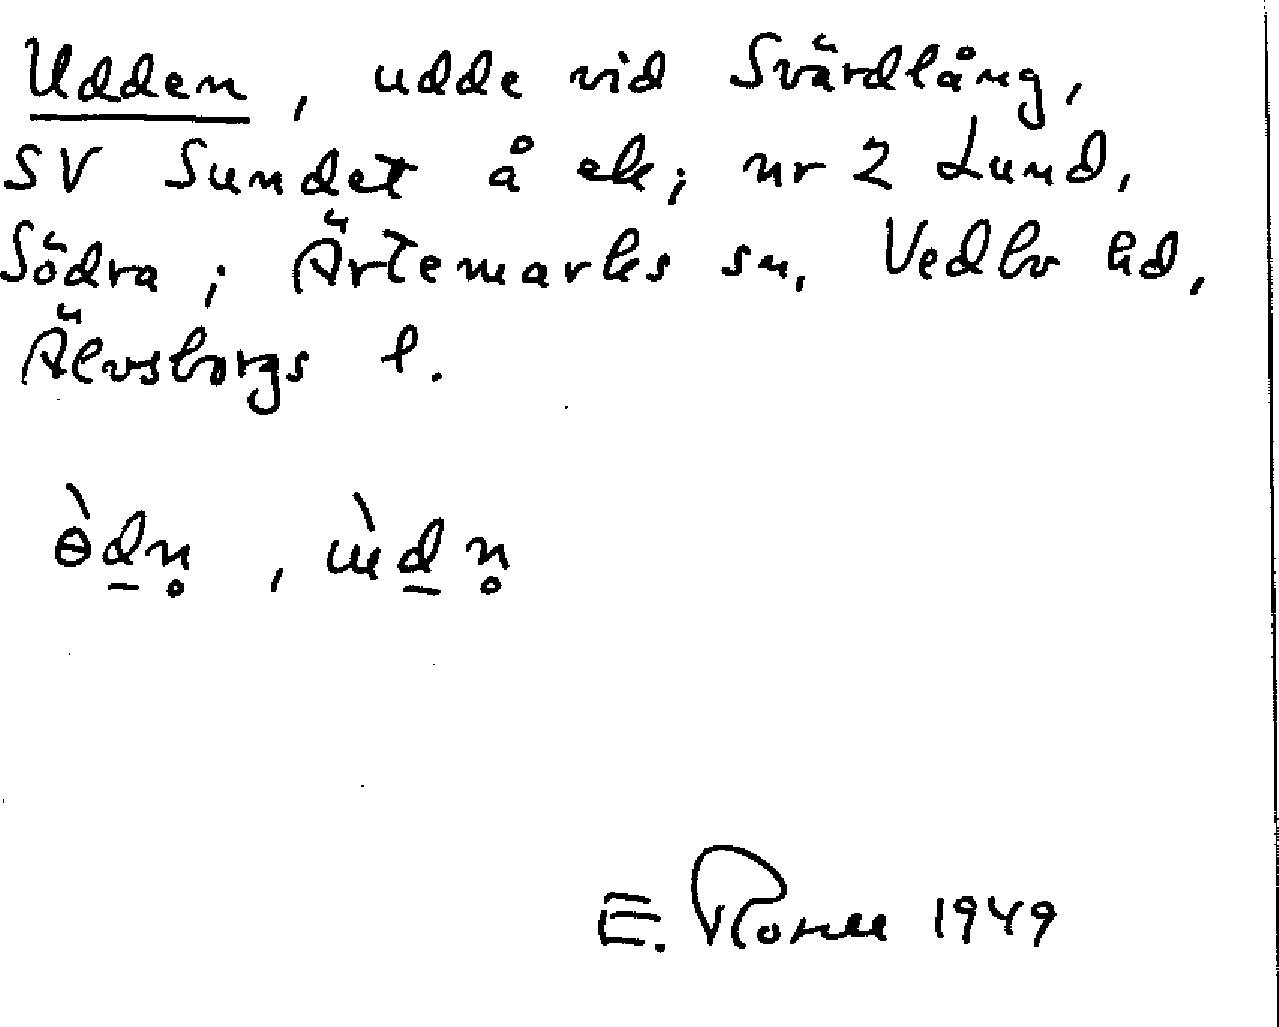 Udden, udde vid Svärdlång,
SV Sundet å ek; nr 2 Lund,
Södra; Ärtemarks sn, Vedbo hd,
Älvsborgs l.
ɵ̀d̠n̥, ɯ̀d̠n̥
E. 1949